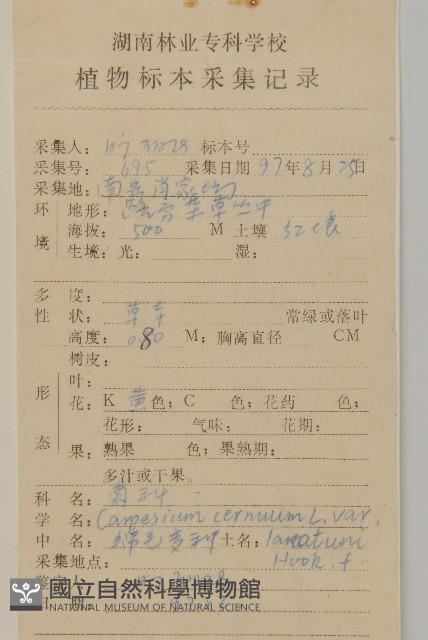 湖南林业专科学校
植物标本采集记录
采集人： 标本号
采集号： 695 采集日期 97年8月25日
采集地： 南岳
环境
地形： 草丛中
海拔： 500 M 土壤 红壤
生境：光： 湿：
多 度：
性 状： 草本 常绿或落叶
高度： 0.80 M；胸高直径 CM
树皮：
形态
叶：
花：K 黄色；C 色；花药 色；
花形： 气味： 花期：
果：熟果 色；果熟期：
多汁或干果。
科 名： 菊科
学 名： Carpesium cernuum L. var.
中 名： 绵毛 土名： lanatum
采集地点： Hook. f.
國立自然科學博物館
NATIONAL MUSEUM OF NATURAL SCIENCE